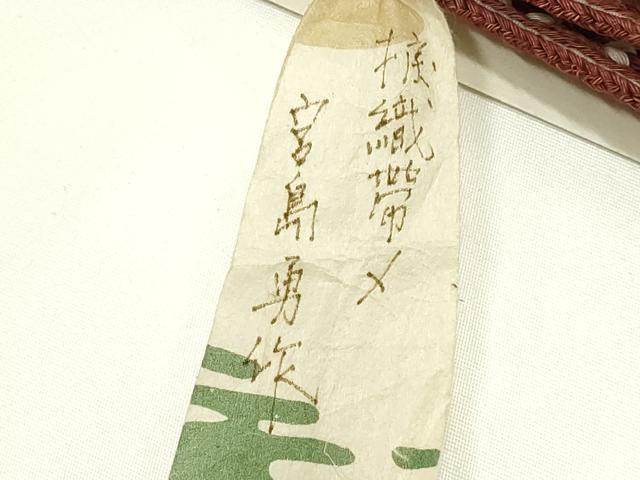 織帯〆
宮島勇作